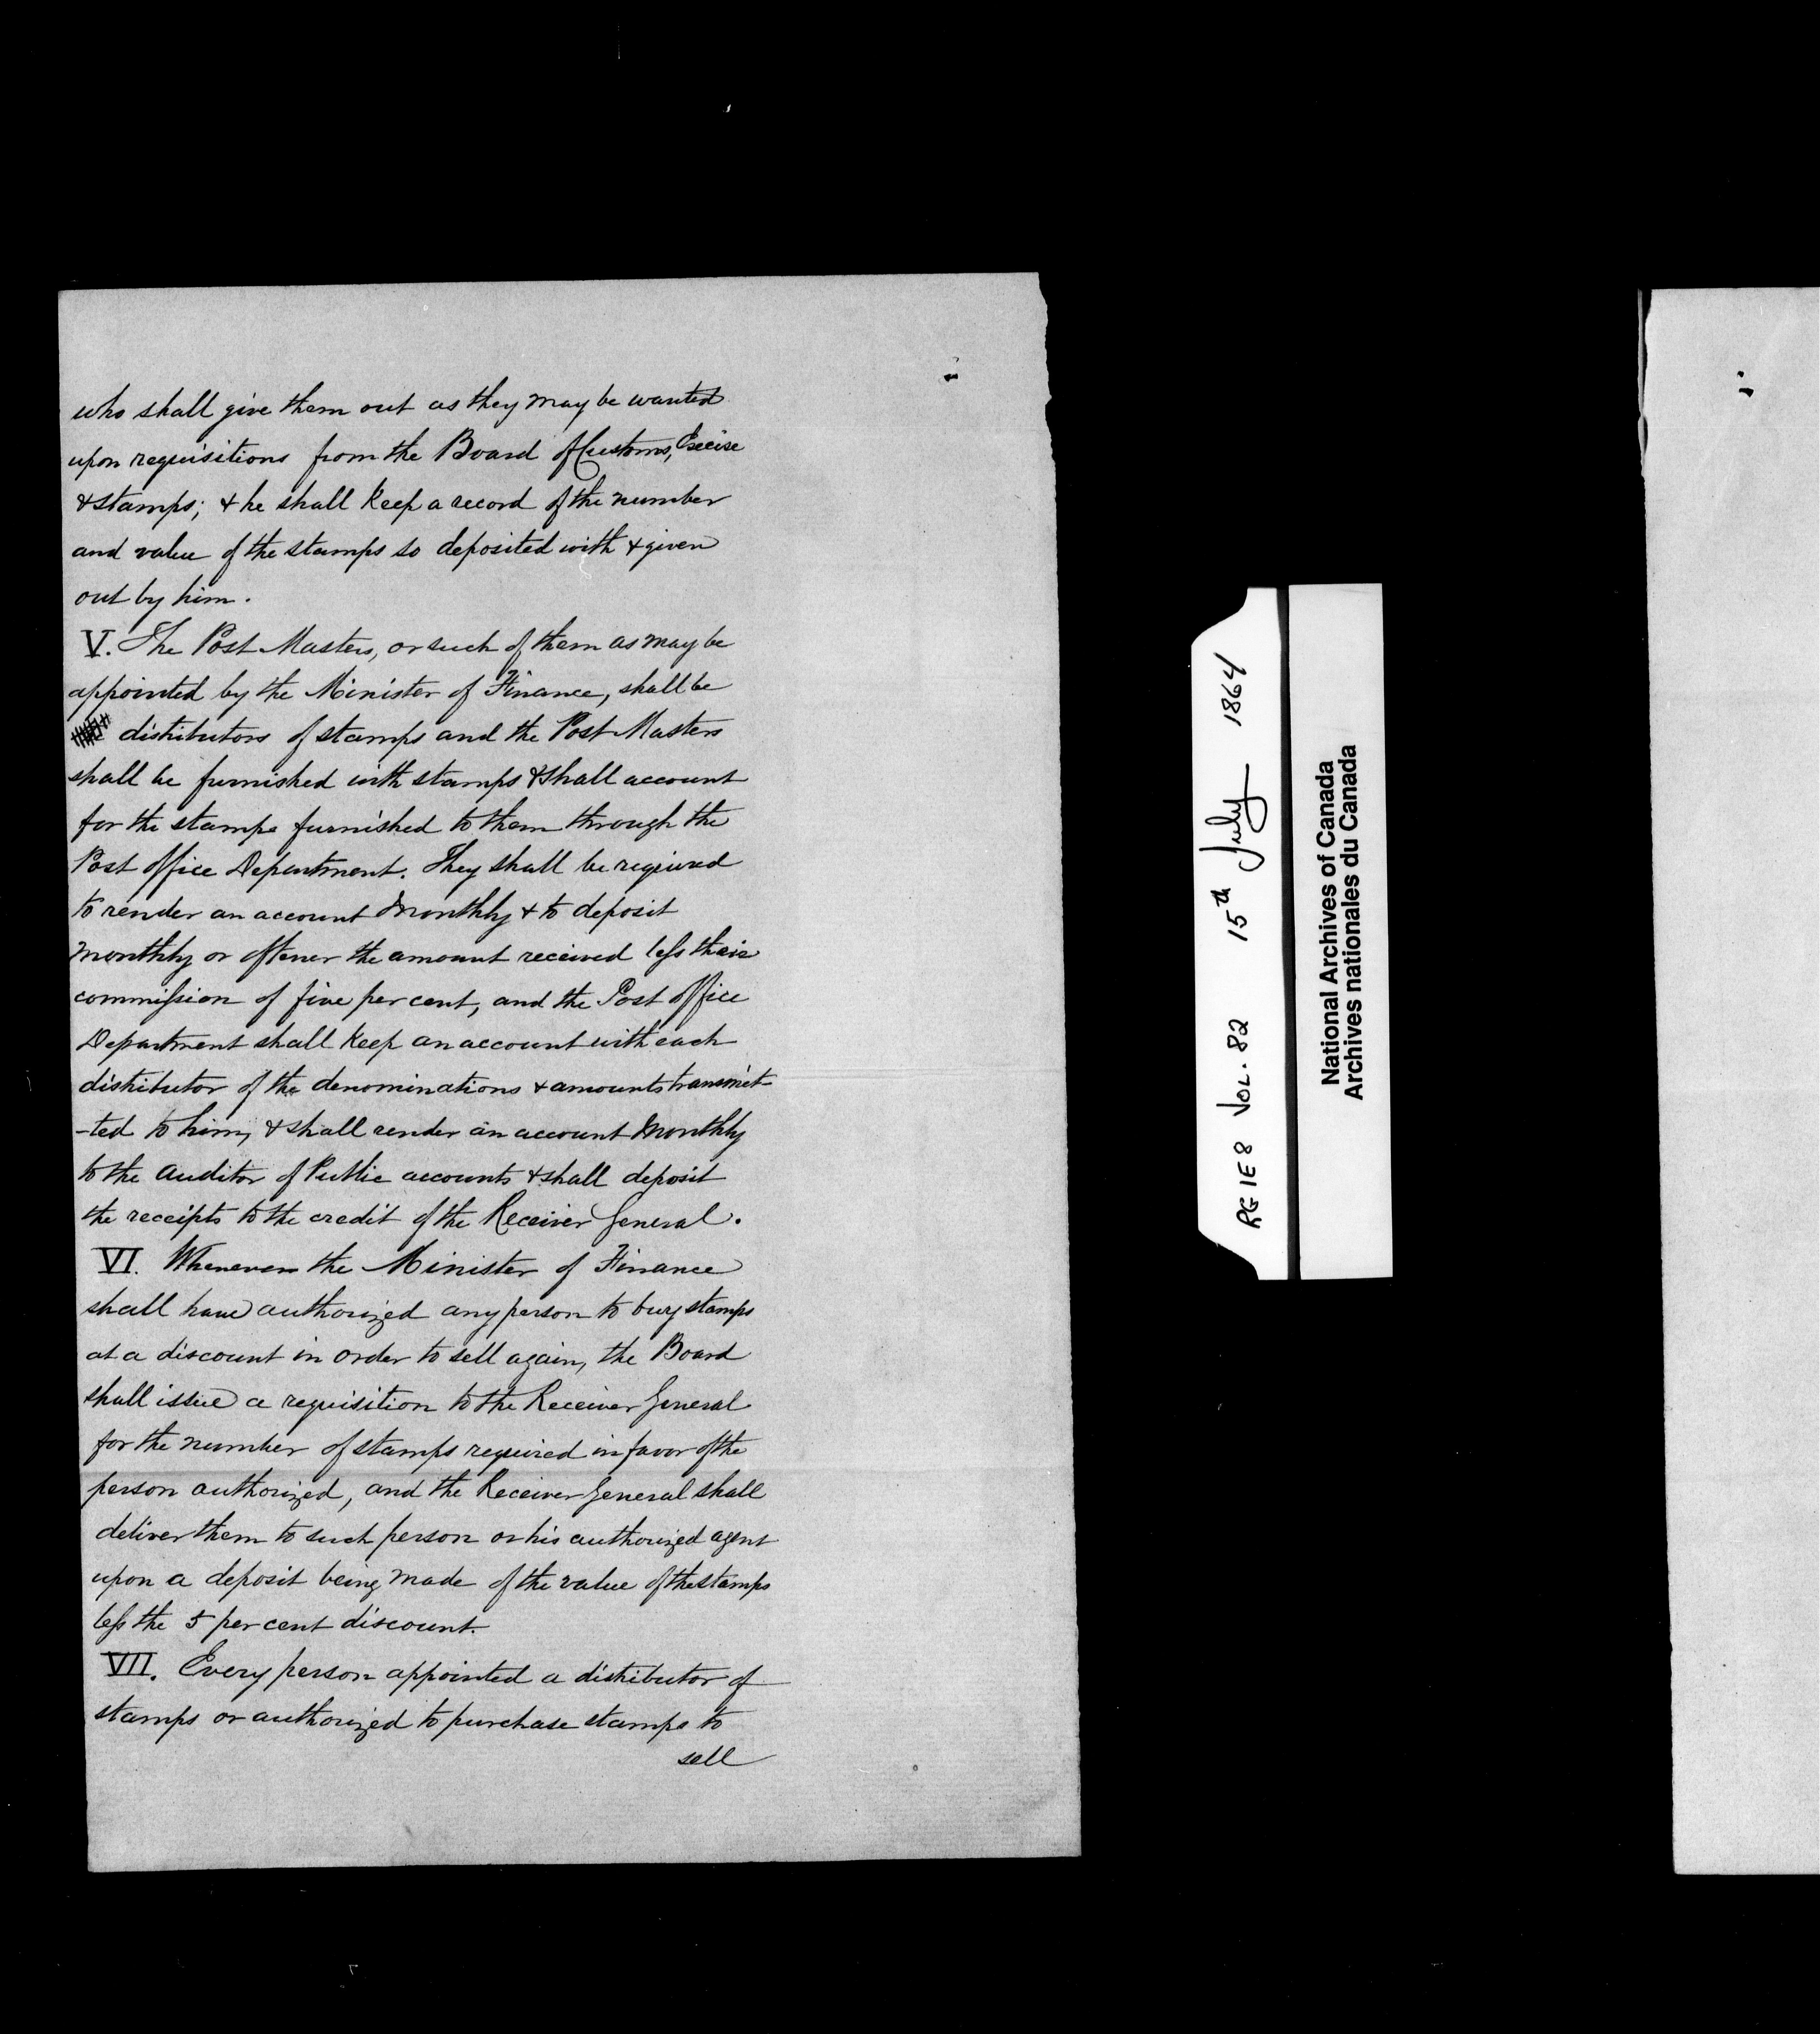 who shall give them out as they may be wanted
upon requisitions from the Board of Customs, Excise
& stamps; & he shall keep a record of the number
and value of the stamps so deposited with & given
out by him.
V. The Post Masters, or such of them as may be
appointed by the Minister of Finance, shall be
distributors of stamps and the Post Masters
shall be furnished with stamps & shall account
for the stamps furnished to them through the
Post Office Department. They shall be required
to render an account monthly & to deposit
monthly or oftener the amount received less their
commission of five per cent, and the Post Office
Department shall keep an account with each
distributor of the denominations & amounts transmit-
-ted to him, & shall render an account monthly
to the Auditor of Public accounts & shall deposit
the receipts to the credit of the Receiver General.
VI. Whenever the Minister of Finance
shall have authorized any person to buy stamps
at a discount in order to sell again, the Board
shall issue a requisition to the Receiver General
for the number of stamps required in favor of the
person authorized, and the Receiver General shall
deliver them to such person or his authorized agent
upon a deposit being made of the value of the stamps
less the 5 per cent discount.
VII. Every person appointed a distributor of
stamps or authorized to purchase stamps to
sell
RG 1 E 8 VOL. 82 15th July 1864
National Archives of Canada
Archives nationales du Canada